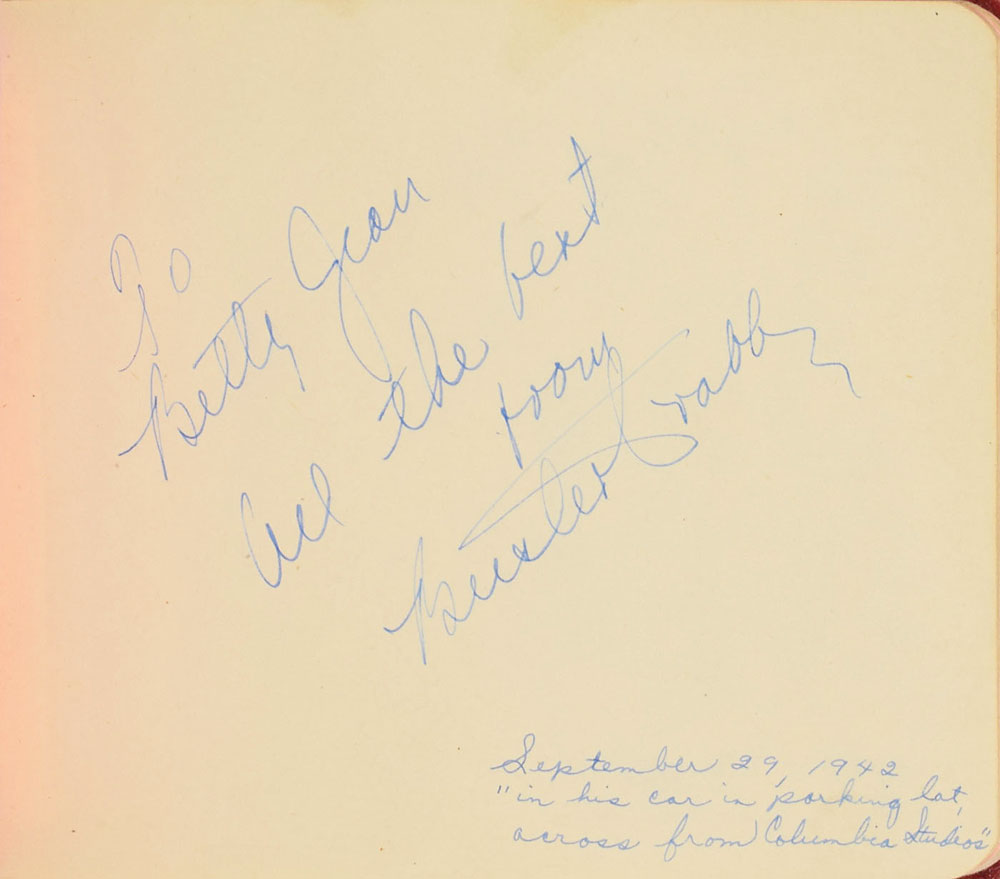 To
Betty Jean
All the best
from
Buster Crabbe
September 29, 1942
"in his car in parking lot,
across from Columbia Studios"